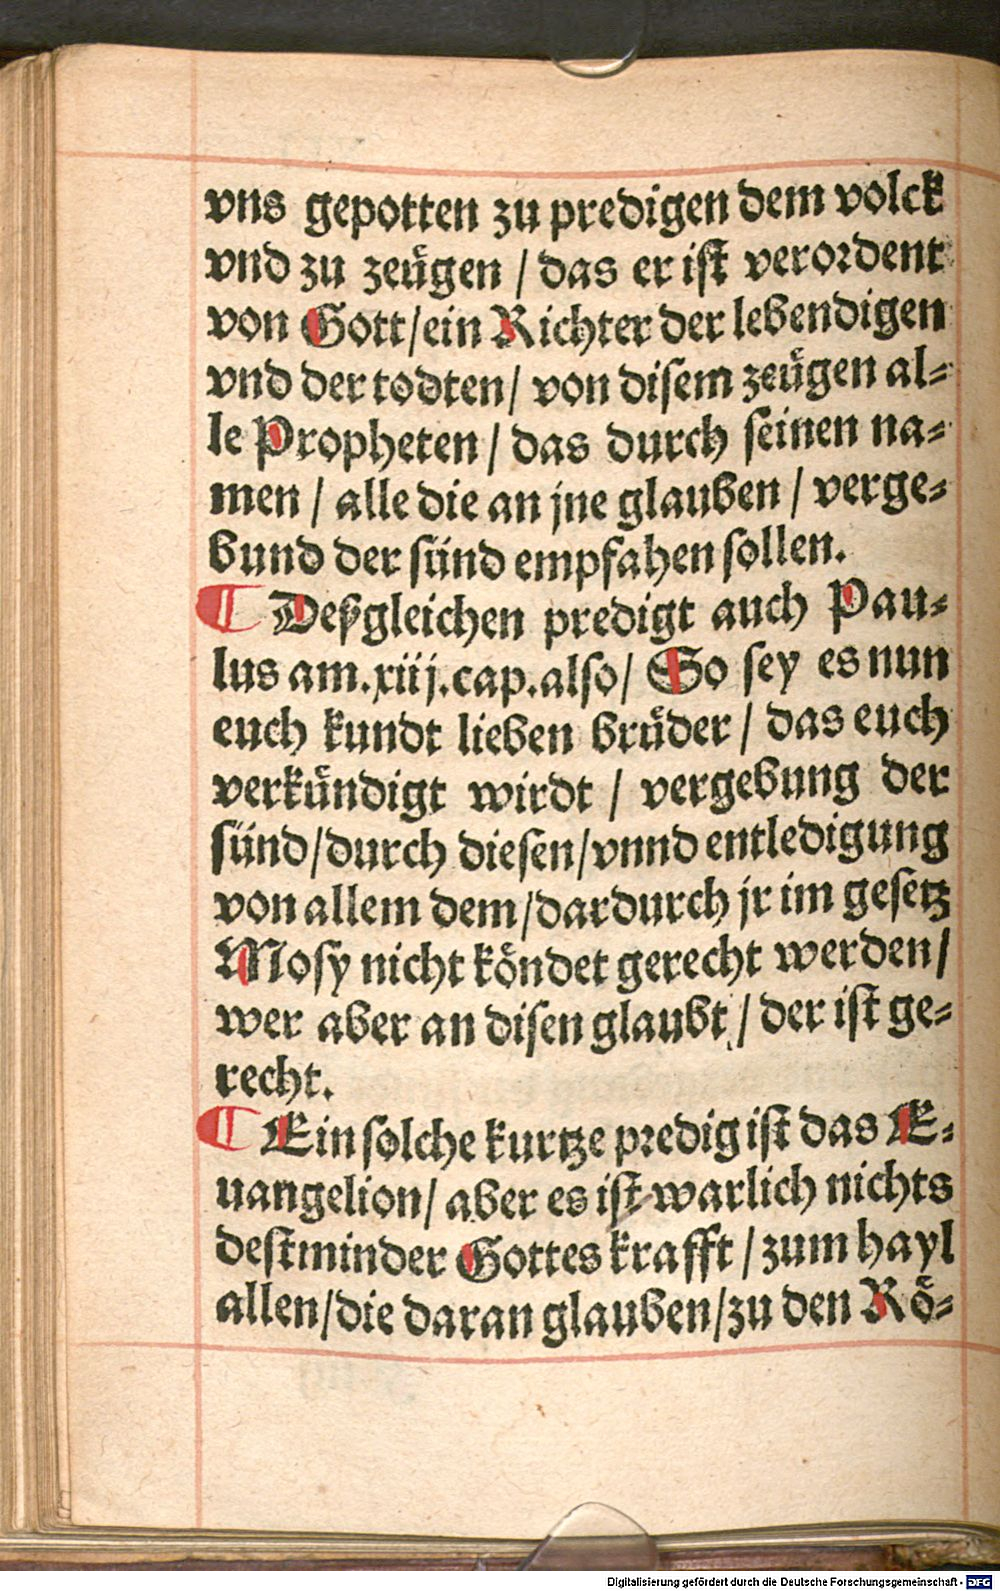 vns gepotten zu predigen dem volck
vnd zu zeügen / das er ist verordent
von Gott/ein Richter der lebendigen
vnd der todten/ von disem zeügen al⸗
le Propheten / das durch seinen na⸗
men / alle die an jne glauben / verge⸗
bund der sünd empfahen sollen.
¶ Deßgleichen predigt auch Pau⸗
lus am.xiij.cap.also/ So sey es nun
euch kundt lieben brüder / das euch
verkündigt wirdt / vergebung der
sünd/durch diesen/vnnd entledigung
von allem dem/dardurch jr im gesetz
Mosy nicht köndet gerecht werden/
wer aber an disen glaubt / der ist ge⸗
recht.
¶ Ein solche kurtze predig ist das E⸗
uangelion/ aber es ist warlich nichts
destminder Gottes krafft / zum hayl
allen/die daran glauben/zu den Rö⸗
Digitalisierung gefördert durch die Deutsche Forschungsgemeinschaft - DFG